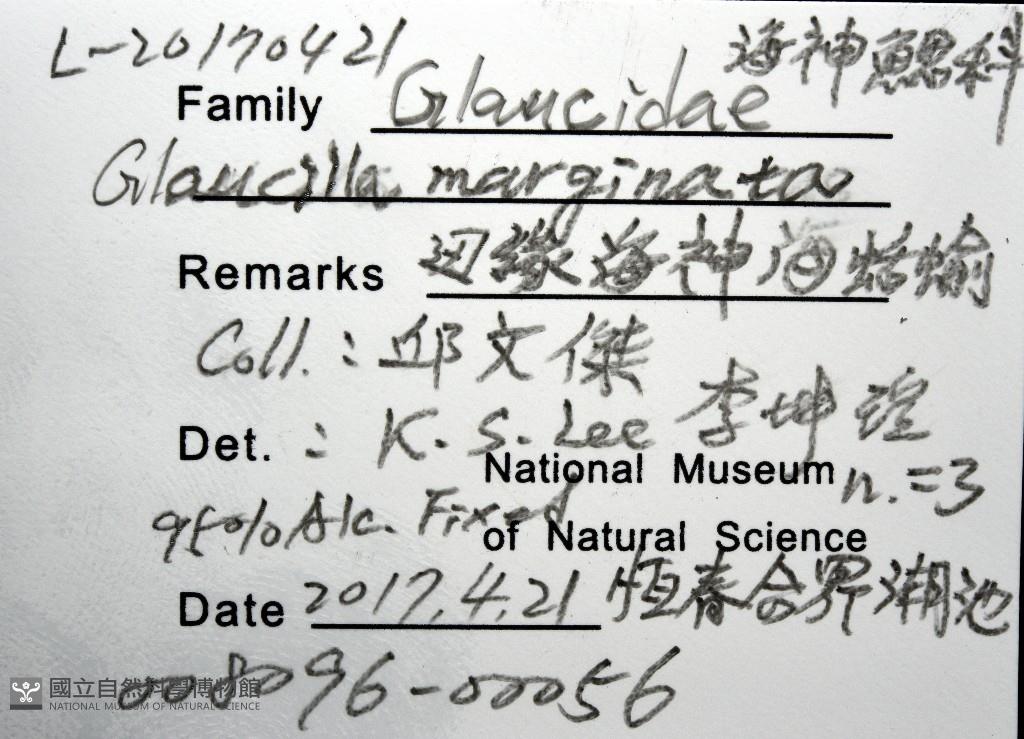 L-20170421 海神鰓科
Family Glaucidae
Glaucilla marginata
Remarks 辺緣海神海蛞蝓
Coll.: 邱文傑
Det.: K.S. Lee 李坤瑄
National Museum n.=3
95% Alc. Fixed
of Natural Science
Date 2017.4.21 恆春合界潮池
008096-00056
國立自然科學博物館
NATIONAL MUSEUM OF NATURAL SCIENCE